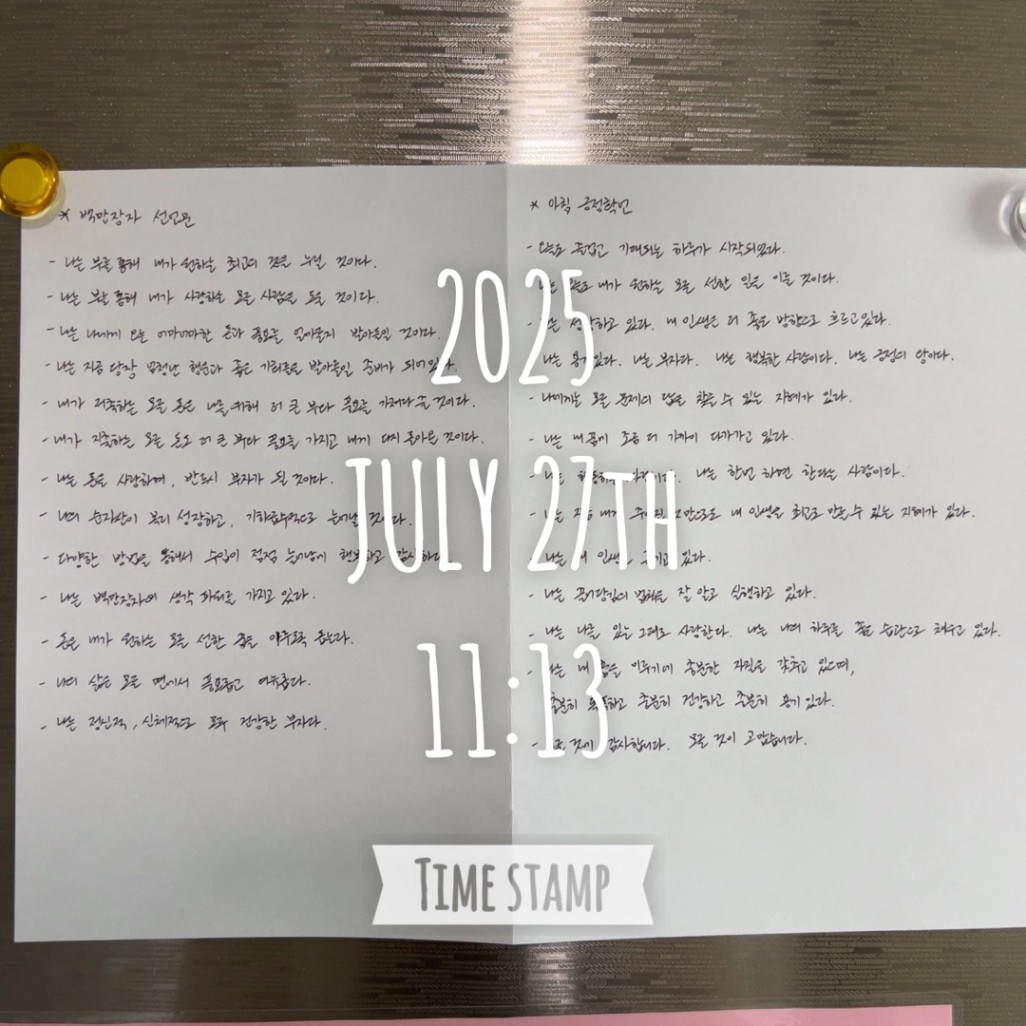 * 백만장자 선언문
- 나는 부를 통해 내가 원하는 최고의 것을 누릴 것이다.
- 나는 부를 통해 내가 사랑하는 모든 사람을 도울 것이다.
- 나는 나에게 오는 어마어마한 돈과 풍요를 얼마든지 받아들일 것이다.
- 나는 지금 당장 엄청난 행운과 좋은 기회들을 받아들일 준비가 되어있다.
- 내가 저축하는 모든 돈은 나를 위해 더 큰 부와 풍요를 가져다 줄 것이다.
- 내가 지출하는 모든 돈도 더 큰 부와 풍요를 가지고 내게 다시 돌아올 것이다.
- 나는 돈을 사랑하며, 반드시 부자가 될 것이다.
- 나의 순자산이 분리 성장하고, 기하급수적으로 늘어날 것이다.
- 다양한 방법을 통해서 수입이 점점 늘어남에 행복하고 감사하다.
- 나는 백만장자의 생각 파워를 가지고 있다.
- 돈은 내가 원하는 모든 선한 꿈을 이루도록 돕는다.
- 나의 삶은 모든 면에서 풍요롭고 여유롭다.
- 나는 정신적, 신체적으로 모두 건강한 부자다.
* 아침 긍정확언
- 오늘도 즐겁고 기대되는 하루가 시작되었다.
- 나는 오늘도 내가 원하는 모든 선한 일을 이룰 것이다.
- 나는 성장하고 있다. 내 인생은 더 좋은 방향으로 흐르고 있다.
- 나는 용기있다. 나는 부자다. 나는 행복한 사람이다. 나는 긍정의 왕이다.
- 나에게는 모든 문제의 답을 찾을 수 있는 지혜가 있다.
- 나는 내 꿈에 조금 더 가까이 다가가고 있다.
- 나는 행동하는 사람이다. 나는 한번 하면 한다는 사람이다.
- 나는 지금 내게 주어진 것만으로도 내 인생을 최고로 만들 수 있는 지혜가 있다.
- 나는 내 인생을 즐기고 있다.
- 나는 끌어당김의 법칙을 잘 알고 실행하고 있다.
- 나는 나를 있는 그대로 사랑한다. 나는 나의 하루를 좋은 습관으로 채우고 있다.
- 나는 내 꿈을 이루기에 충분한 자질을 갖추고 있으며,
충분히 똑똑하고 충분히 건강하고 충분히 용기 있다.
- 모든 것에 감사합니다. 모든 것이 고맙습니다.
2025
JULY 27TH
11:13
TIME STAMP